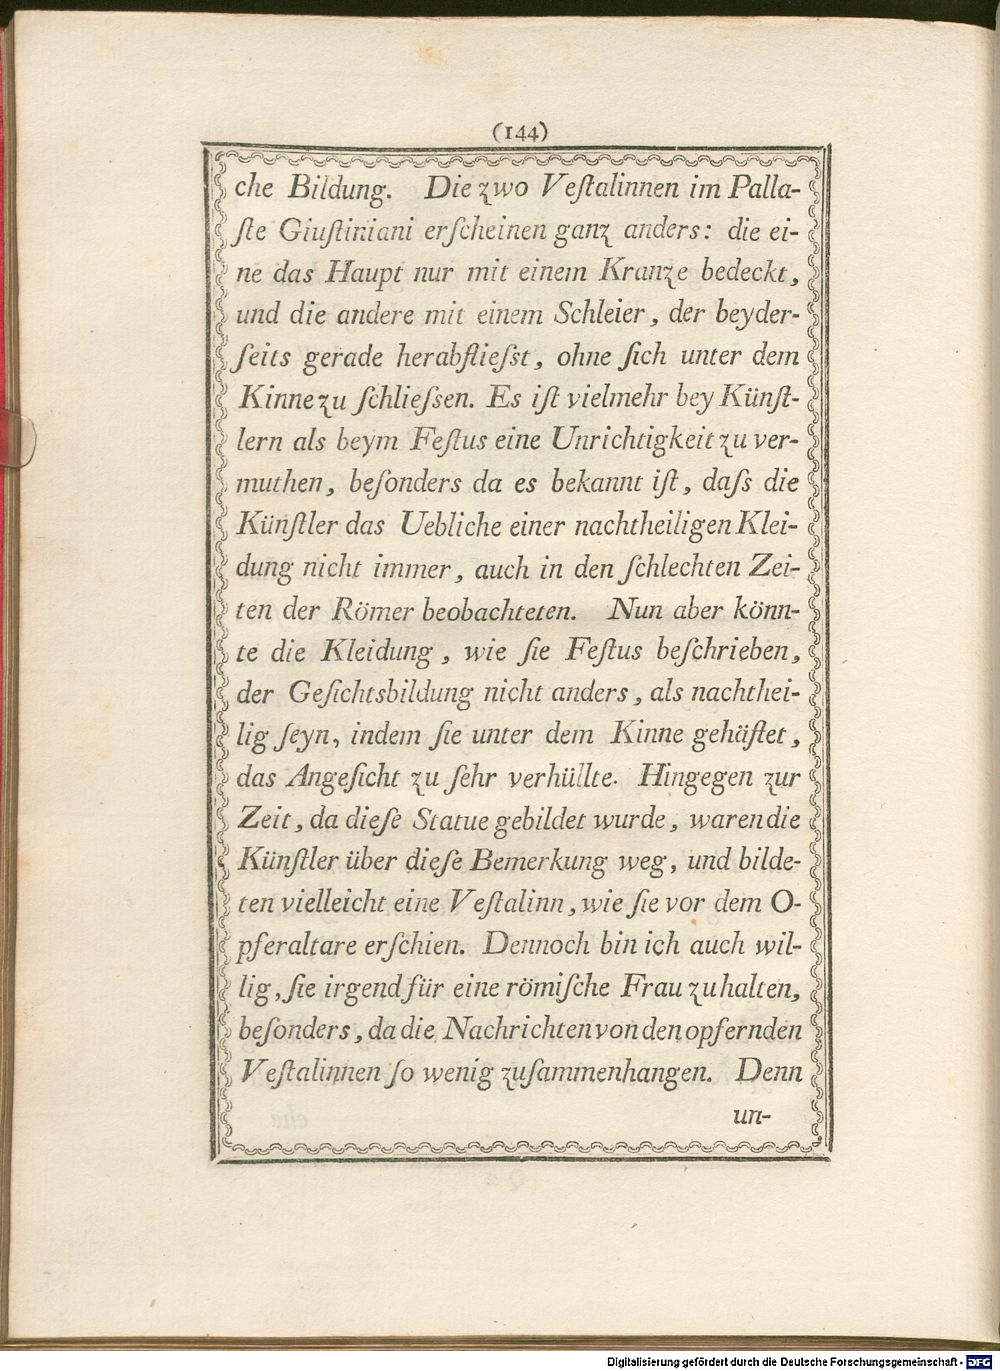 (144)
che Bildung. Die zwo Veſtalinnen im Palla-
ſte Giuſtiniani erſcheinen ganz anders: die ei-
ne das Haupt nur mit einem Kranze bedeckt,
und die andere mit einem Schleier, der beyder-
ſeits gerade herabflieſst, ohne ſich unter dem
Kinne zu ſchlieſsen. Es iſt vielmehr bey Künſt-
lern als beym Feſtus eine Unrichtigkeit zu ver-
muthen, beſonders da es bekannt iſt, daſs die
Künſtler das Uebliche einer nachtheiligen Klei-
dung nicht immer, auch in den ſchlechten Zei-
ten der Römer beobachteten. Nun aber könn-
te die Kleidung, wie ſie Feſtus beſchrieben,
der Geſichtsbildung nicht anders, als nachthei-
lig ſeyn, indem ſie unter dem Kinne gehäftet,
das Angeſicht zu ſehr verhüllte. Hingegen zur
Zeit, da dieſe Statue gebildet wurde, waren die
Künſtler über dieſe Bemerkung weg, und bilde-
ten vielleicht eine Veſtalinn, wie ſie vor dem O-
pferaltare erſchien. Dennoch bin ich auch wil-
lig, ſie irgend für eine römiſche Frau zu halten,
beſonders, da die Nachrichten von den opfernden
Veſtalinnen ſo wenig zuſammenhangen. Denn
un-
Digitalisierung gefördert durch die Deutsche Forschungsgemeinschaft - DFG